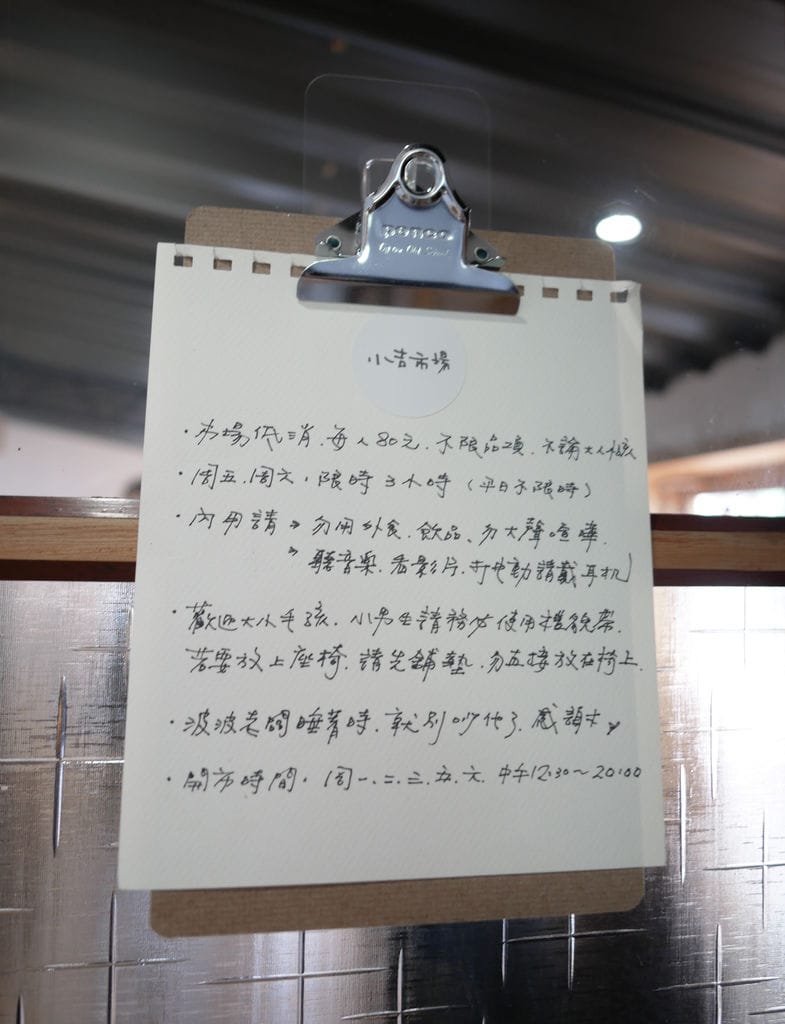 penco
小吉市場
・市場低消.每人80元.不限品項.不論大人小孩
・周五.周六,限時3小時(平日不限時)
・內用請 » 勿用外食.飲品、勿大聲喧嘩.
» 聽音樂.看影片.手遊請戴耳机
・歡迎大小毛孩.小男生請務必使用禮貌帶.
若要放上座椅.請先鋪墊.勿直接放在椅上.
・波波老闆睡著時.就別吵他了.感謝
・開市時間.周一.二.三.五.六.中午12:30~20:00